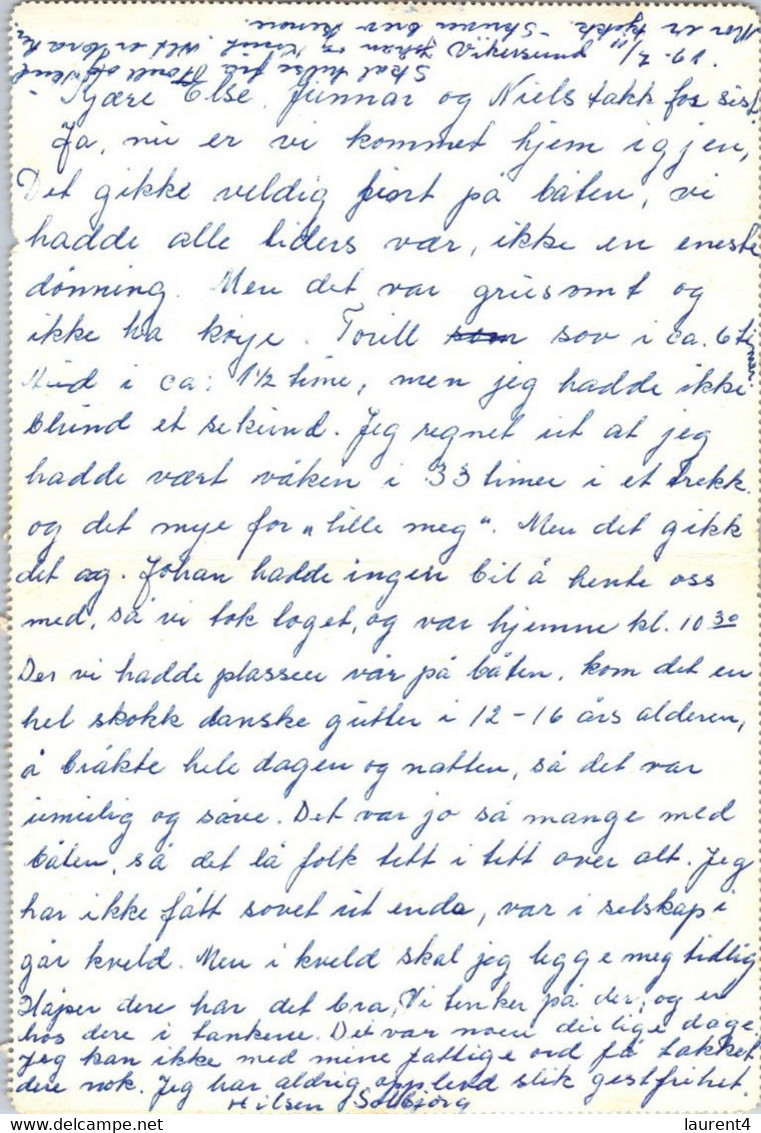 Kjære Else, Gunnar og Niels takk for sist.
Ja, nu er vi kommet hjem igjen,
Det gikke veldig fiort på båten, vi
hadde alle tiders vær, ikke en eneste
dønning. Men det var grusomt og
ikke ha køye. Torill som sov i ca. 6 timer.
i ca: 1½ time, men jeg hadde ikke
blund et sekund. Jeg regnet ut at jeg
hadde vært våken i 33 timer i et trekk.
og det mye for "lille meg". Men det gikk
det og. Johan hadde ingen bil å hente oss
med, så vi tok toget, og var hjemme kl. 10 30
Der vi hadde plassen vår på båten, kom det en
hel skokk danske gutter i 12-16 års alderen,
å bråkte hele dagen og natten, så det var
umulig og såve. Det var jo så mange med
båten, så det lå folk tett i tett over alt. Jeg
har ikke fått sovet ut enda, var i selskap i
går kveld. Men i kveld skal jeg legge meg tidlig
Håper dere har det bra, Vi tenker på der, og er
hos dere i tankene. Det var noen deilige dage.
Jeg kan ikke med mine fattige ord få takket
dere nok. Jeg har aldri opplevd slik gestfrihet.
Hilsen Solbjørg
Skal hilse fra
Johan og Knut.
Mor er kjekk. Skriver brev senere.